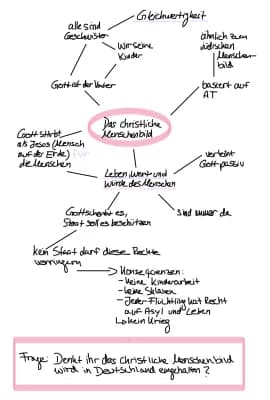 Gleichwertigkeit
alle sind
Geschwister
Wir seine
Kinder
Gott ist der Vater
ähnlich zum
jüdischen
Menschen-
bild
basiert auf
AT
Das christliche
Menschenbild
Gott stirbt
als Jesus (Mensch
auf der Erde) für
die Menschen
Leben, Wert und
Würde des Menschen
verleiht
Gott passiv
Gott schenkt es,
Staat soll es beschützen
sind immer da
kein Staat darf diese Rechte
verringern
Konsequenzen:
- keine Kinderarbeit
- keine Sklaven
- Jeder Flüchtling hat Recht
auf Asyl und Leben
↳ kein Krieg
Frage: Denkt ihr das christliche Menschenbild
wird in Deutschland eingehalten?